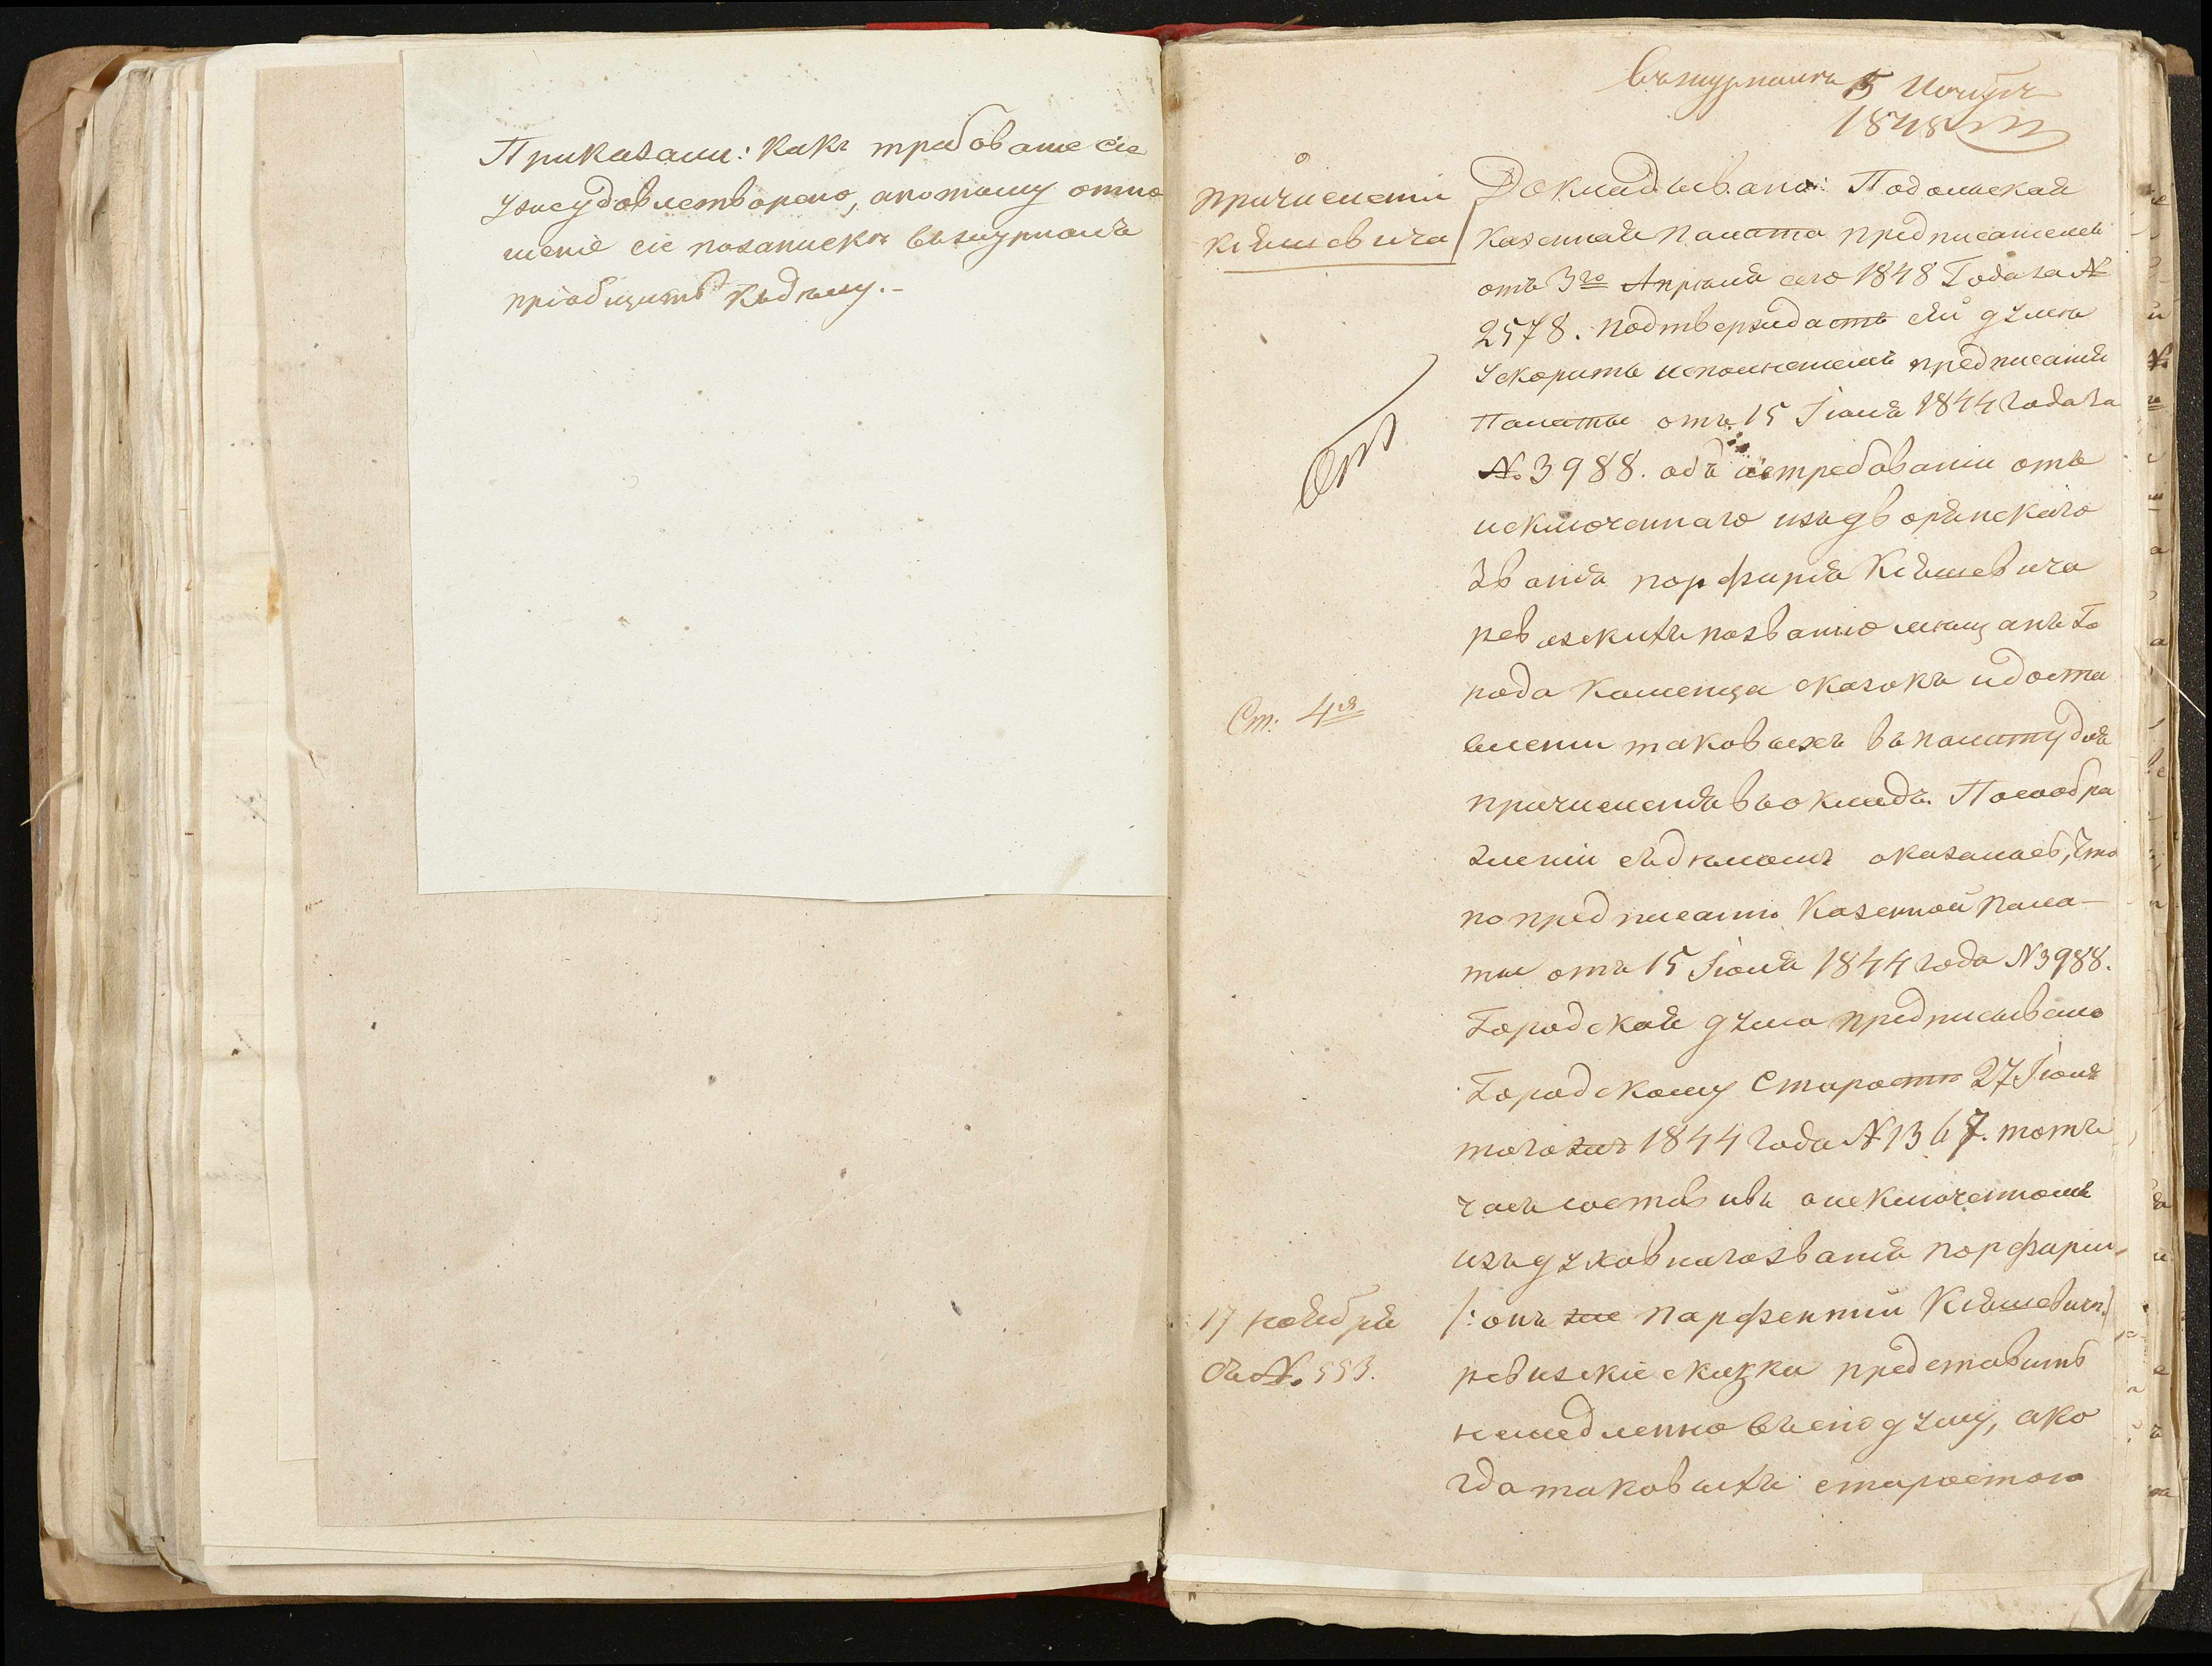 Приказали: какъ требованіе сіе
уже удовлетворено, апотому отно
шеніе сіе позапискѣ въжурналъ
пріобщить къдѣлу.-
Въжурналъ 5 Ноября
1848
О
причисленіи
Кіяшевича
Ст: 4я
17 ноября
за № 553.
Докладывано: Подольская
Казенная Палата предписаніемъ
отъ 3го Апрѣля сего 1848 Года за №
2578. подтверждаетъ сей думѣ
ускорить исполненіемъ предписанія
Палаты отъ 15 Іюня 1844 года за
№ 3988. объ истребованіи отъ
исключеннаго изъдворянскаго
званія порфирія Кіяшевича
ревизскихъ позванію мѣщанъ Го
рода Каменца сказокъ идоста
вленіи таковыхъ въ палату для
причисленія въокладъ. Посообра
женіи съдѣломъ оказалось, что
по предписанію Казенной Пала-
ты отъ 15 Іюня 1844 года № 3988.
Городская дума предписывала
Городскому Старостѣ 27 Іюня
тогоже 1844 года № 1367. тотъ
часъ составивъ о исключенномъ
изъ духовнагозванія порфирии
/: онъ же Парфентий Кіяшевичъ:/
ревизскіе сказки представить
немедленно въсію думу, ако
гда таковыхъ старостою